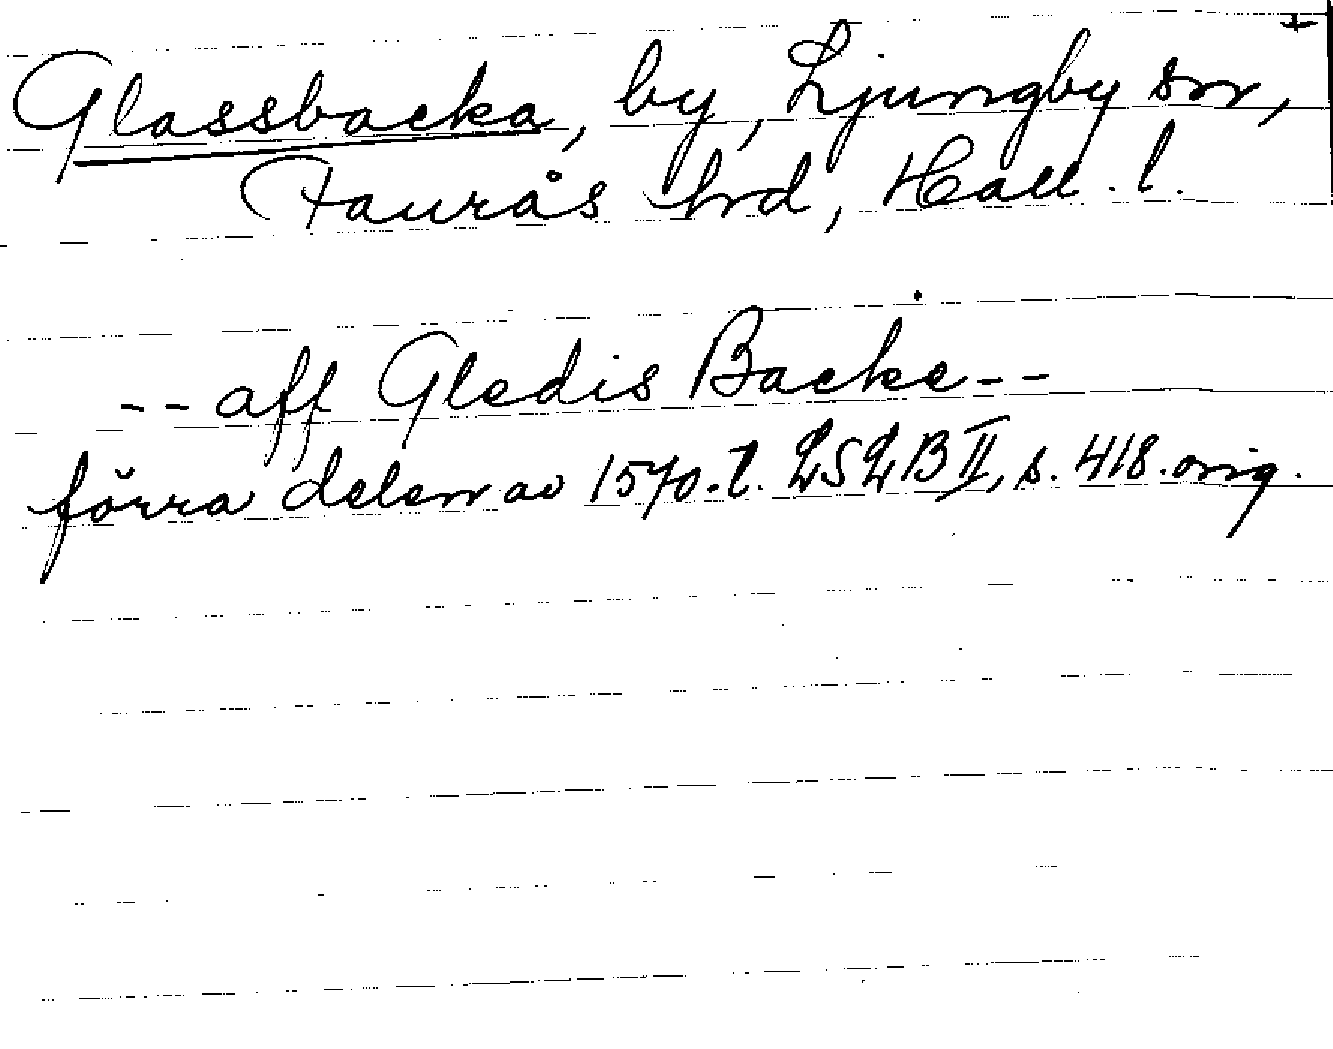 Glassbacka, by, Ljungby sn,
Faurås hrd, Hall. l.
-- aff Gledis Backe --
förra delen av 1570-t. LSLB II, s. 418. orig.